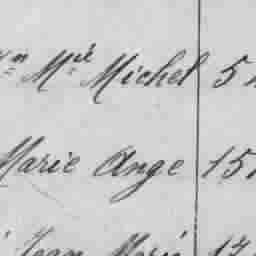 Mel Michel 5
Marie Ange 15
Jean Marie 17